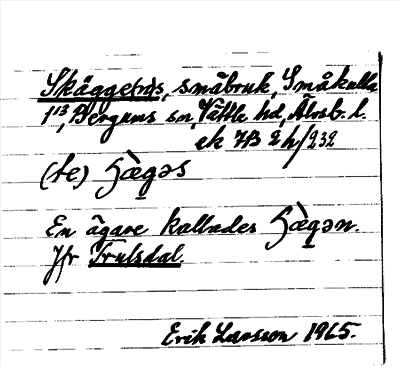 Skäggetrås, småbruk, Småkulla
1¹³, Bergums sn, Vättle hd, Älvsb. l.
ek 7B 2h/232
(te)
En ägare kallades
Jfr Trulsdal.
Erik Larsson 1965.